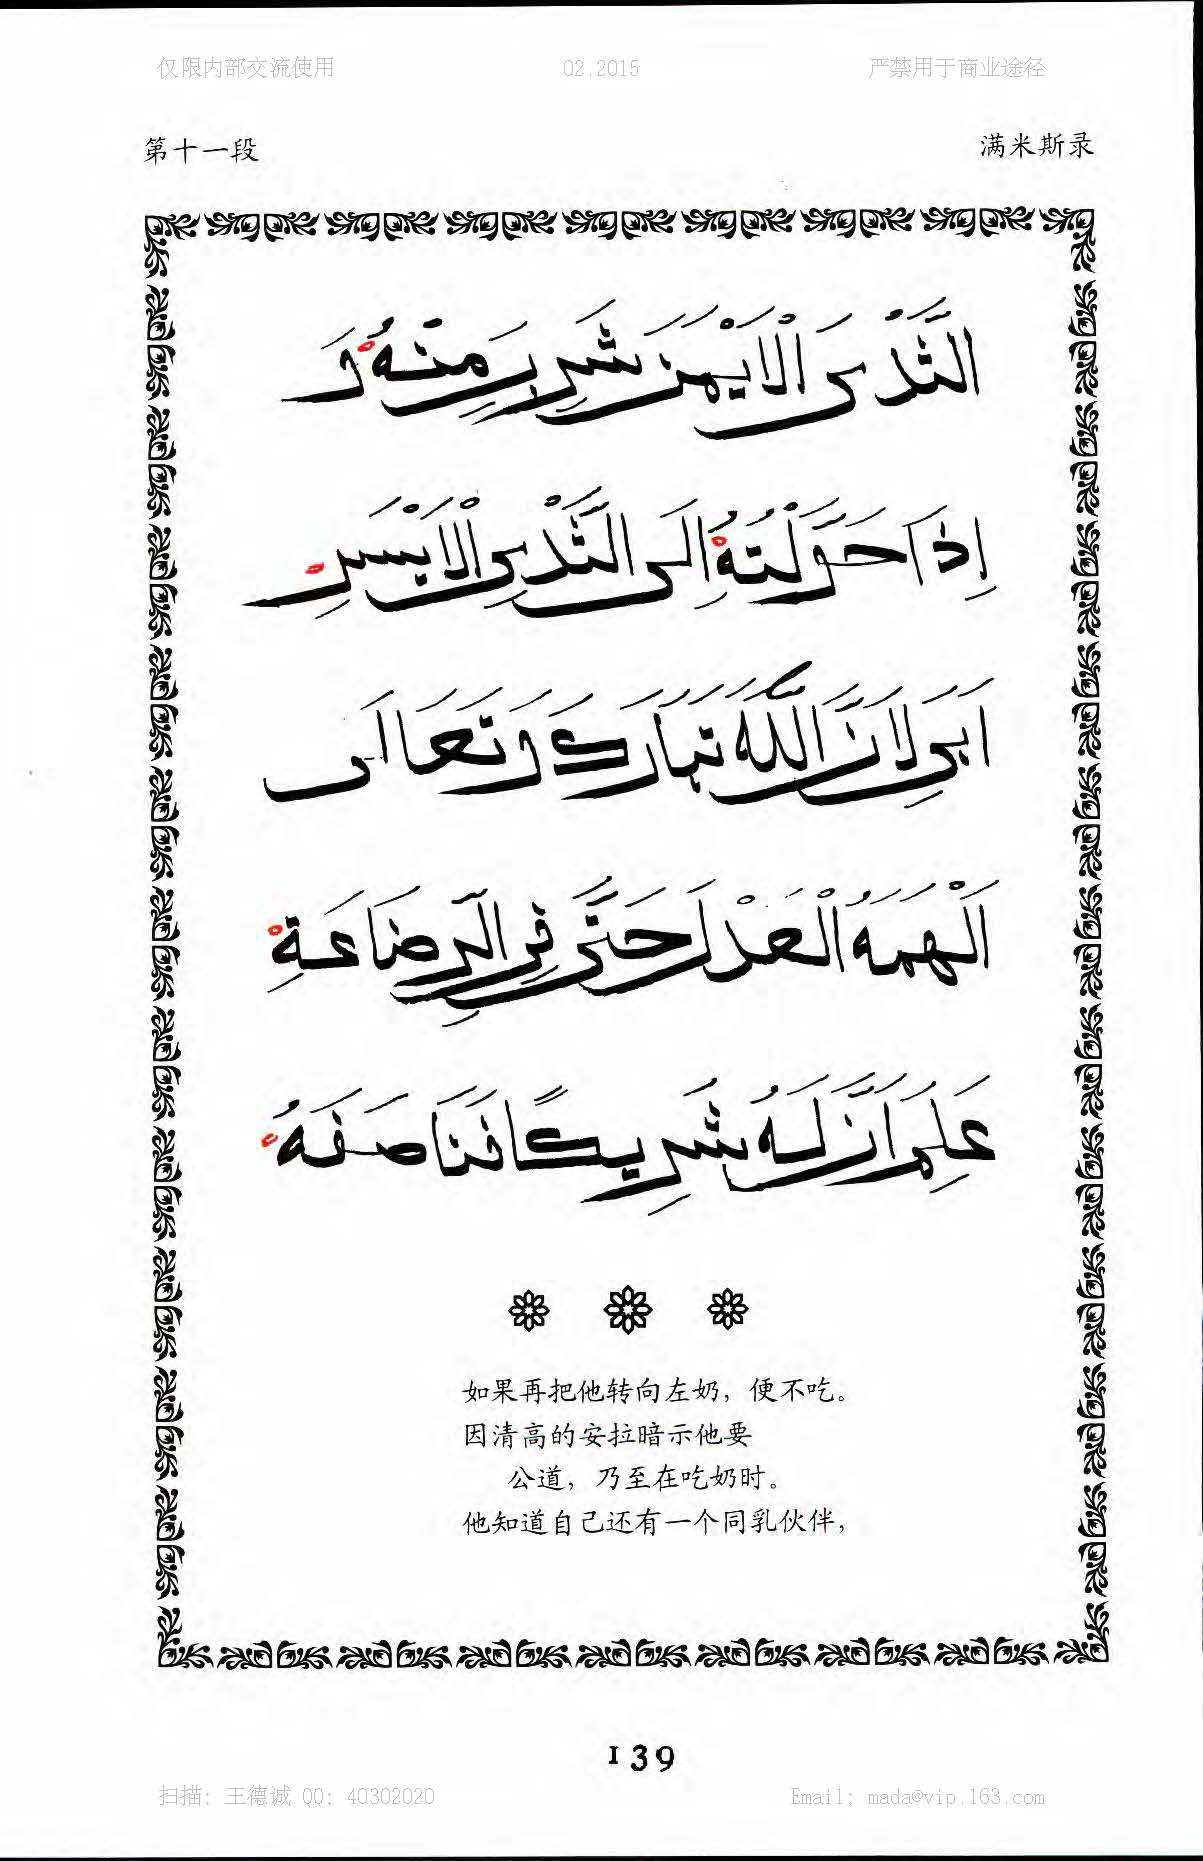 仅限内部交流使用 02.2015 严禁用于商业途径
第十一段 满米斯录
الثَّدْىَ الْاَيْمَنَ شَرِبَ مِنْهُ وَ
اِذَا حَوَّلَتْهُ اِلَى الثَّدْىِ الْاَيْسَرِ
اَبَى لِاَنَّ اللّٰهَ تَبَارَكَ وَ تَعَالَى
اَلْهَمَهُ الْعَدْلَ حَتَّى فِى الرَّضَاعَةِ
عَلِمَ اَنَّ لَهُ شَرِيكًا فَنَاصَفَهُ
如果再把他转向左奶，便不吃。
因清高的安拉暗示他要
公道，乃至在吃奶时。
他知道自己还有一个同乳伙伴，
139
扫描: 王德诚 QQ: 40302020 Email: mada@vip.163.com